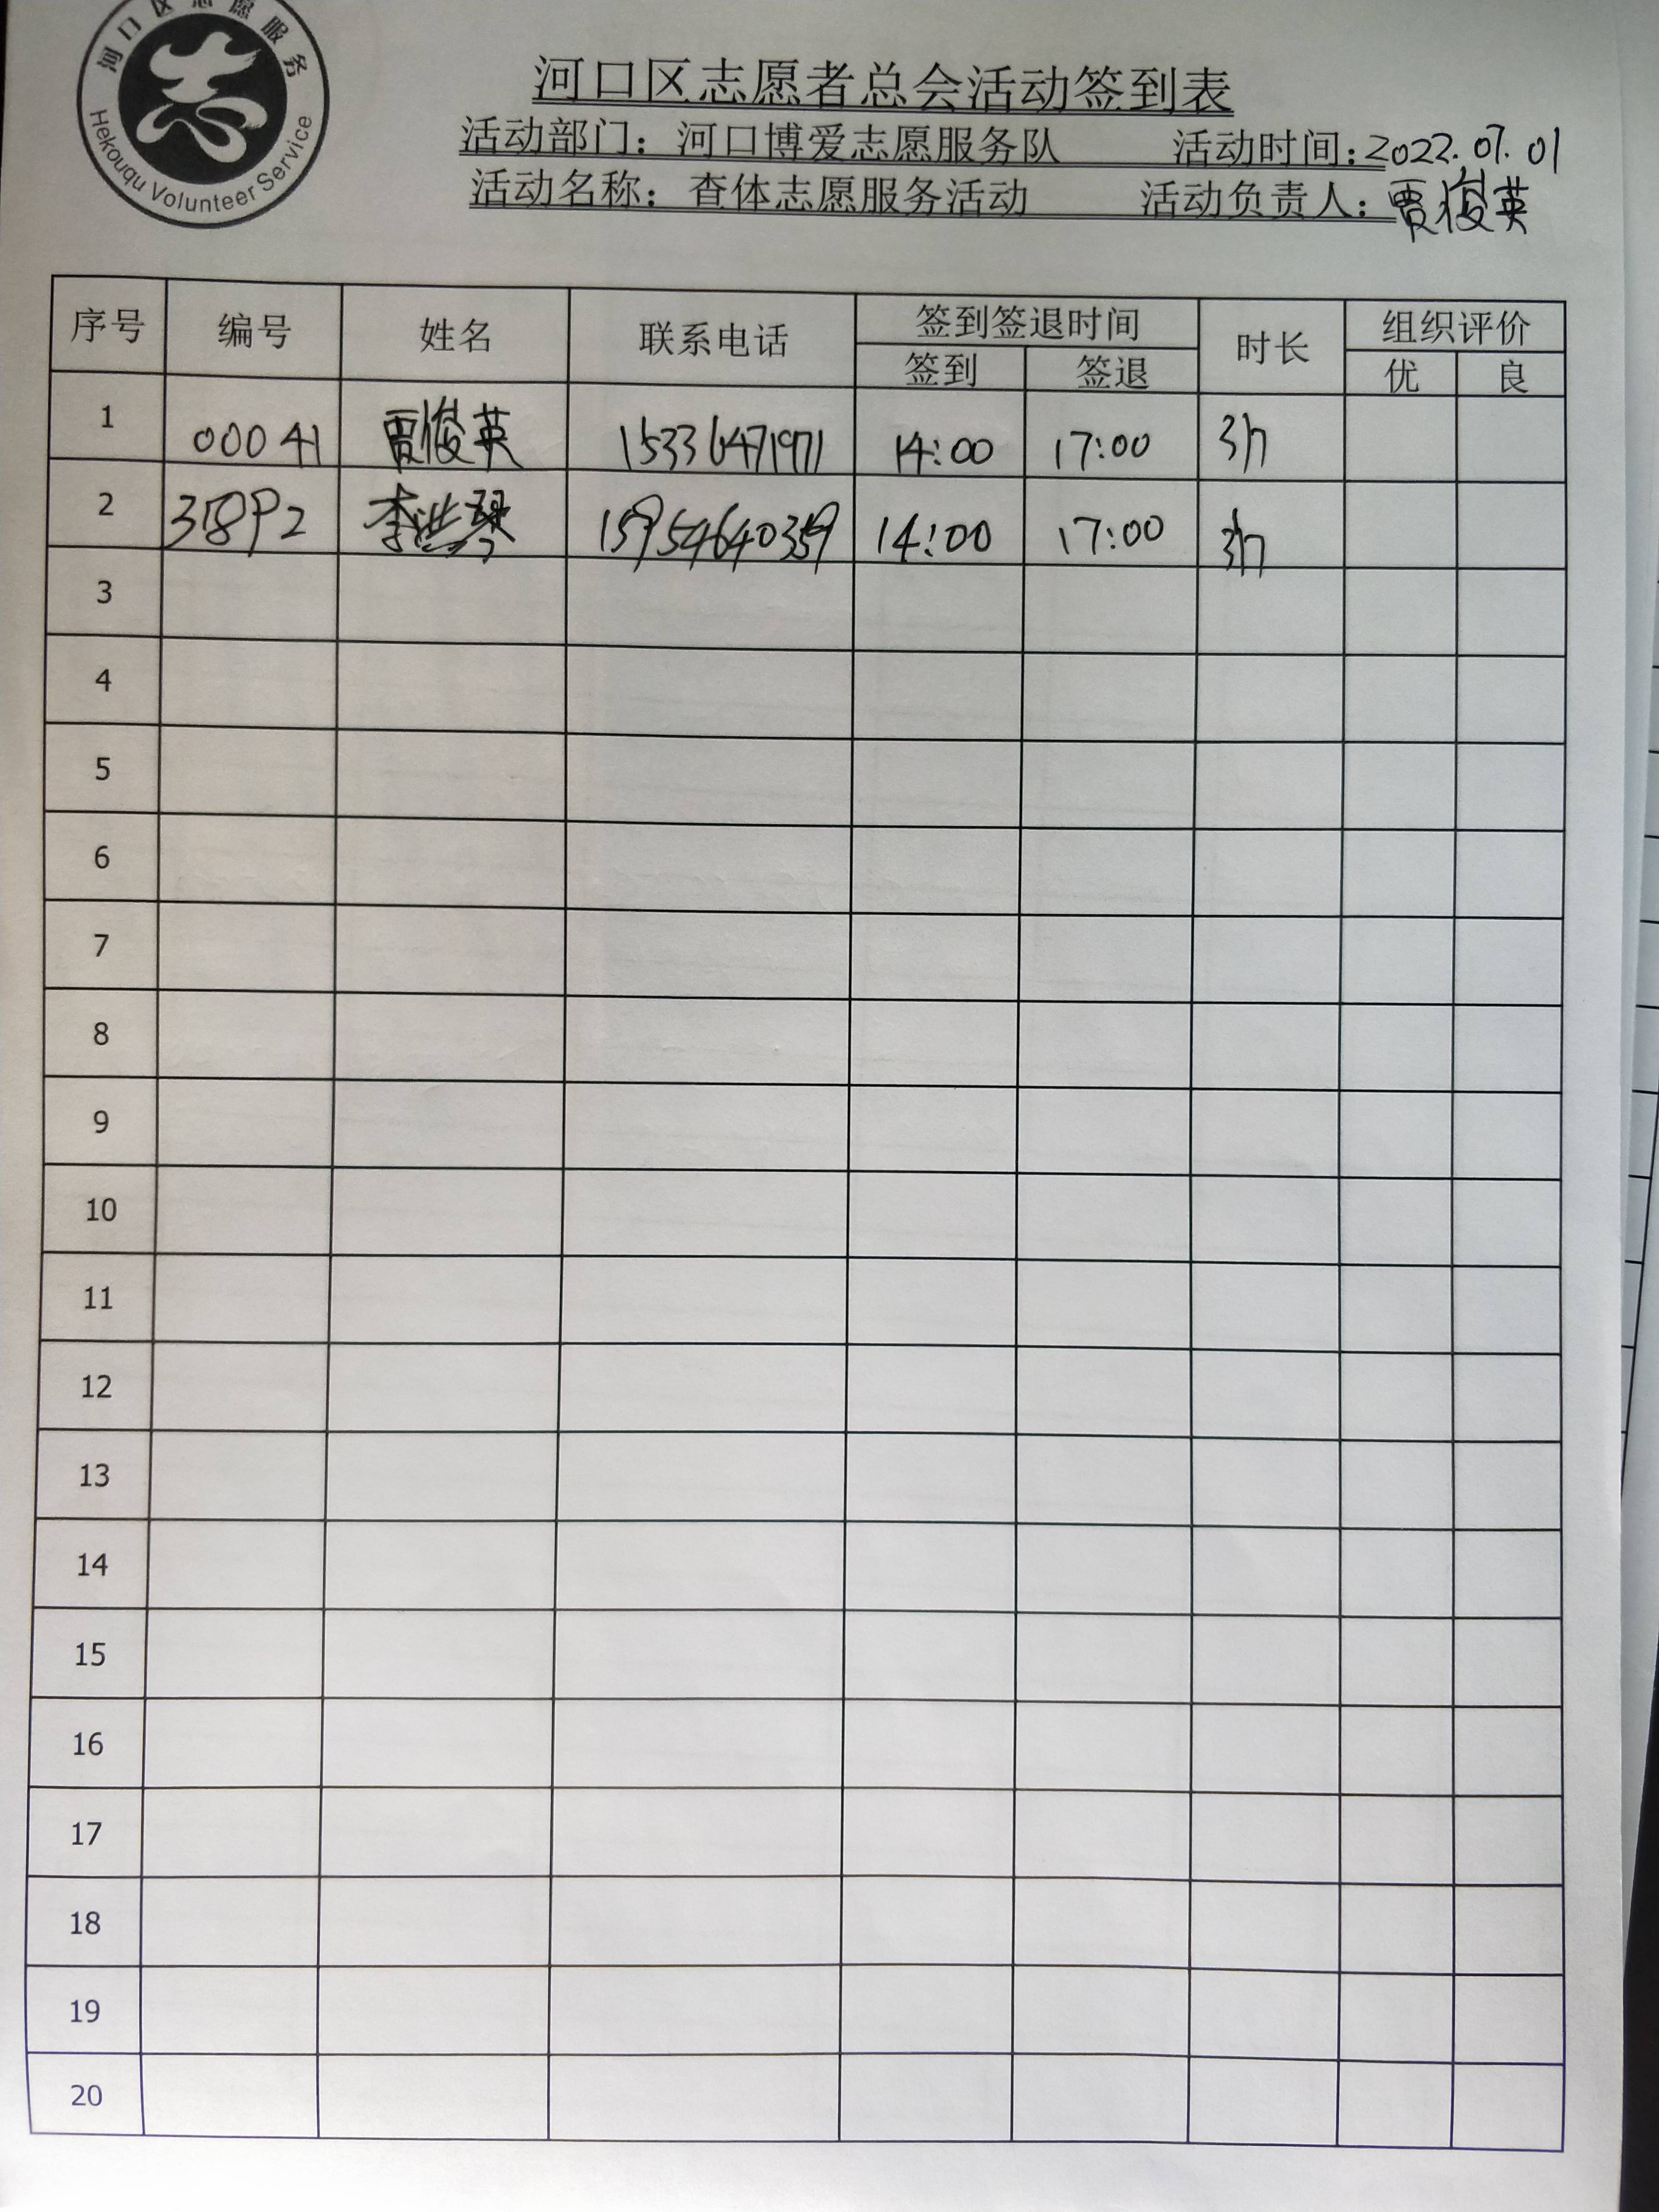 河口区志愿服务
Hekouqu Volunteer Service
河口区志愿者总会活动签到表
活动部门：河口博爱志愿服务队 活动时间：2022.07.01
活动名称：查体志愿服务活动 活动负责人：贾俊英
序号 编号 姓名 联系电话 签到签退时间 时长 组织评价
签到 签退 优 良
1 00041 贾俊英 15336471971 14:00 17:00 3h
2 李洪琴 15954640359 14:00 17:00 3h
3
4
5
6
7
8
9
10
11
12
13
14
15
16
17
18
19
20